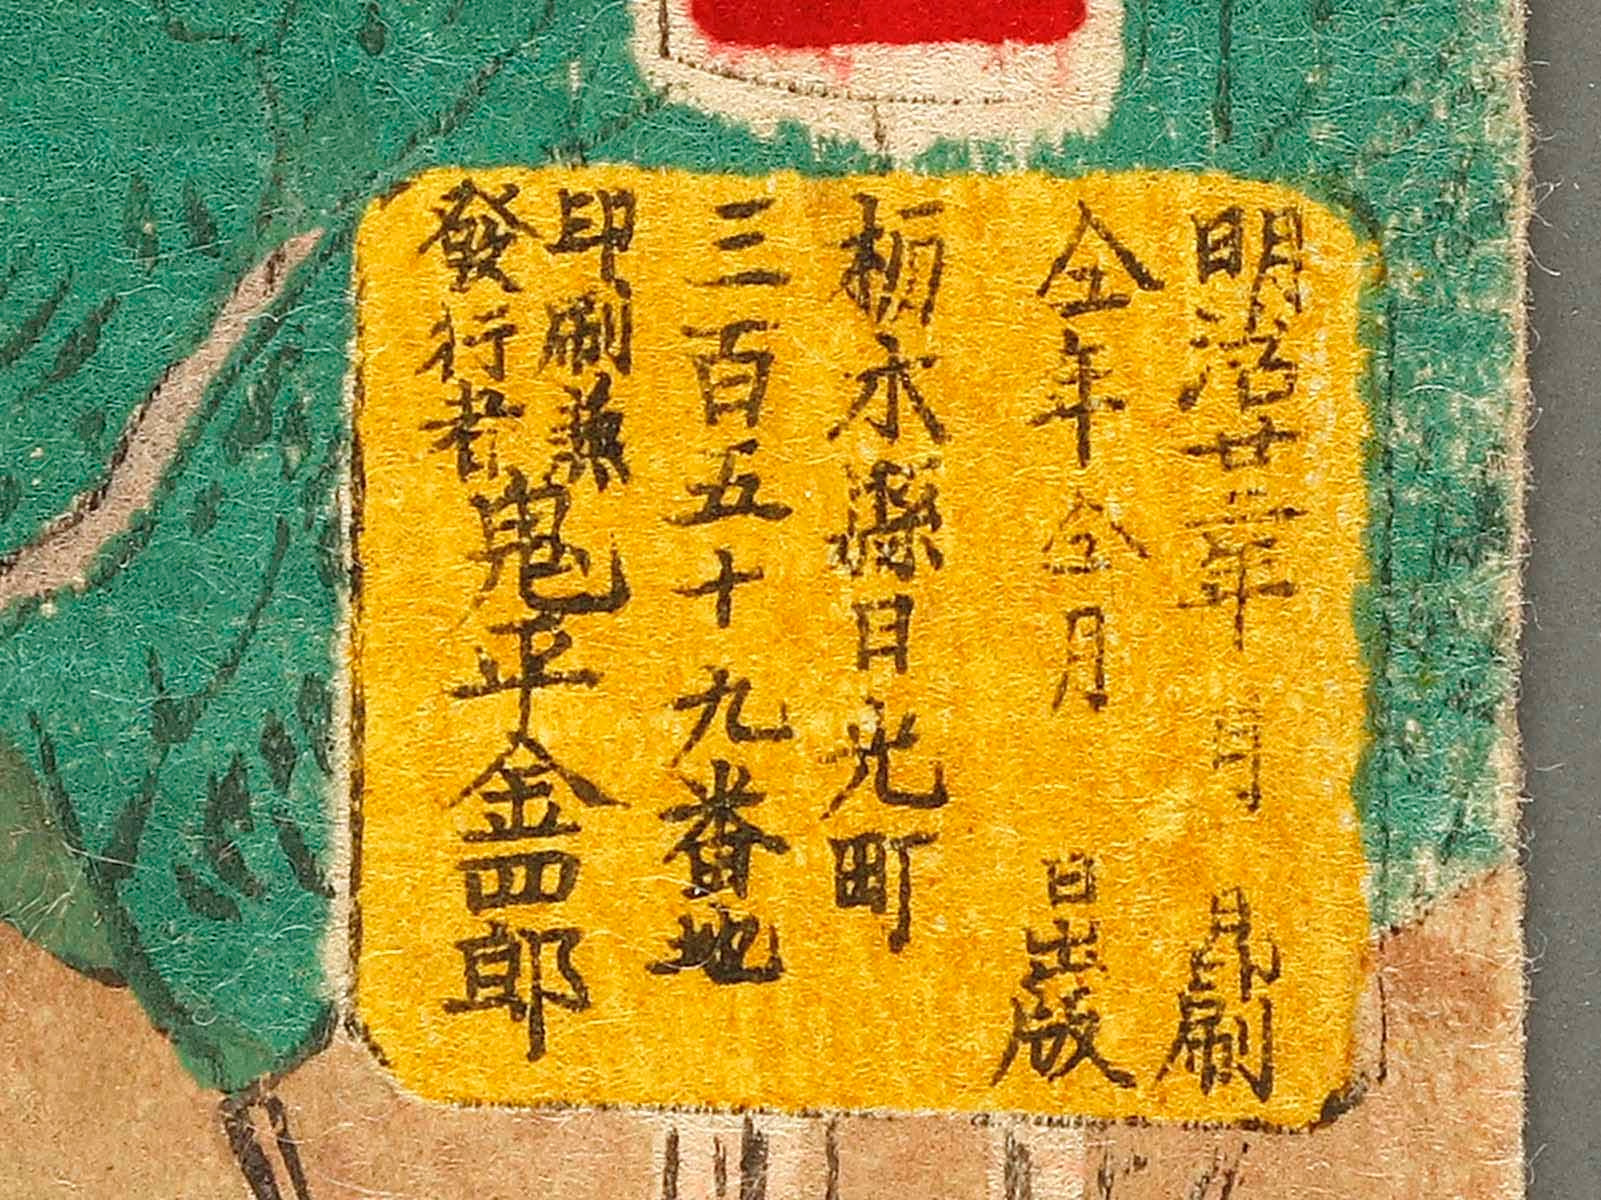 明治廿二年　月　日印刷
仝年仝月　日出版
栃木縣日光町
三百五十九番地
印刷兼
發行者
鬼平金四郎